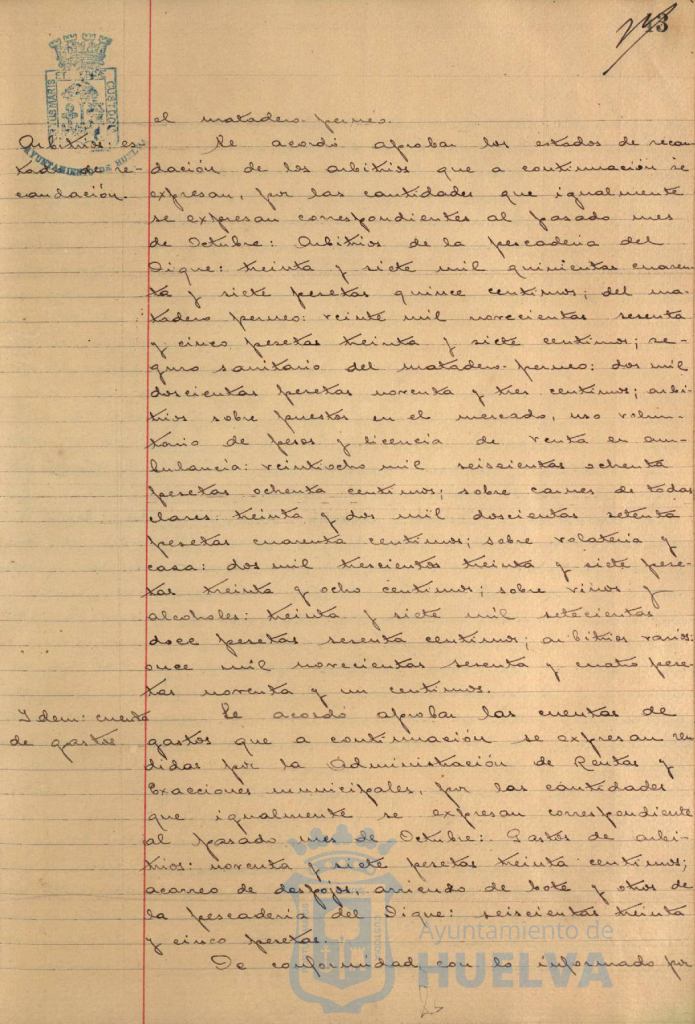 43
el matadero perneo.
Arbitrios: es-
tado de re-
caudación.
Se acordó aprobar los estados de recau
dación de los arbitrios que a continuación se
expresan, por las cantidades que igualmente
se expresan correspondientes al pasado mes
de Octubre: Arbitrios de la pescaderia del
Dique: treinta y siete mil quinientas cuaren-
ta y siete pesetas quince centimos; del ma-
tadero perneo: veinte mil novecientas sesenta
y cinco pesetas treinta y siete centimos; se-
guro sanitario del matadero-perneo: dos mil
doscientas pesetas noventa y tres centimos; arbi-
trios sobre puestos en el mercado, uso volun-
tario de pesos y licencia de venta en am-
bulancia: veintiocho mil seiscientas ochenta
pesetas ochenta centimos; sobre carnes de todas
clases: treinta y dos mil doscientas setenta
pesetas cuarenta centimos; sobre volateria y
casa: dos mil trescientas treinta y siete pese-
tas treinta y ocho centimos; sobre vinos y
alcoholes: treinta y siete mil setecientas
doce pesetas sesenta centimos; arbitrios varios:
once mil novecientas sesenta y cuatro pese-
tas noventa y un centimos.
Idem: cuenta
de gastos
Se acordó aprobar las cuentas de
gastos que a continuación se expresan ren
didas por la Administración de Rentas y
Exacciones municipales, por las cantidades
que igualmente se expresan correspondiente
al pasado mes de Octubre: Gastos de arbi-
trios: noventa y siete pesetas treinta centimos;
acarreo de despojos, arriendo de bote y otros de
la pescaderia del Dique: seiscientas treinta
y cinco pesetas.
De conformidad con lo informado por
AYUNTAMIENTO DE HUELVA
Ayuntamiento de
HUELVA